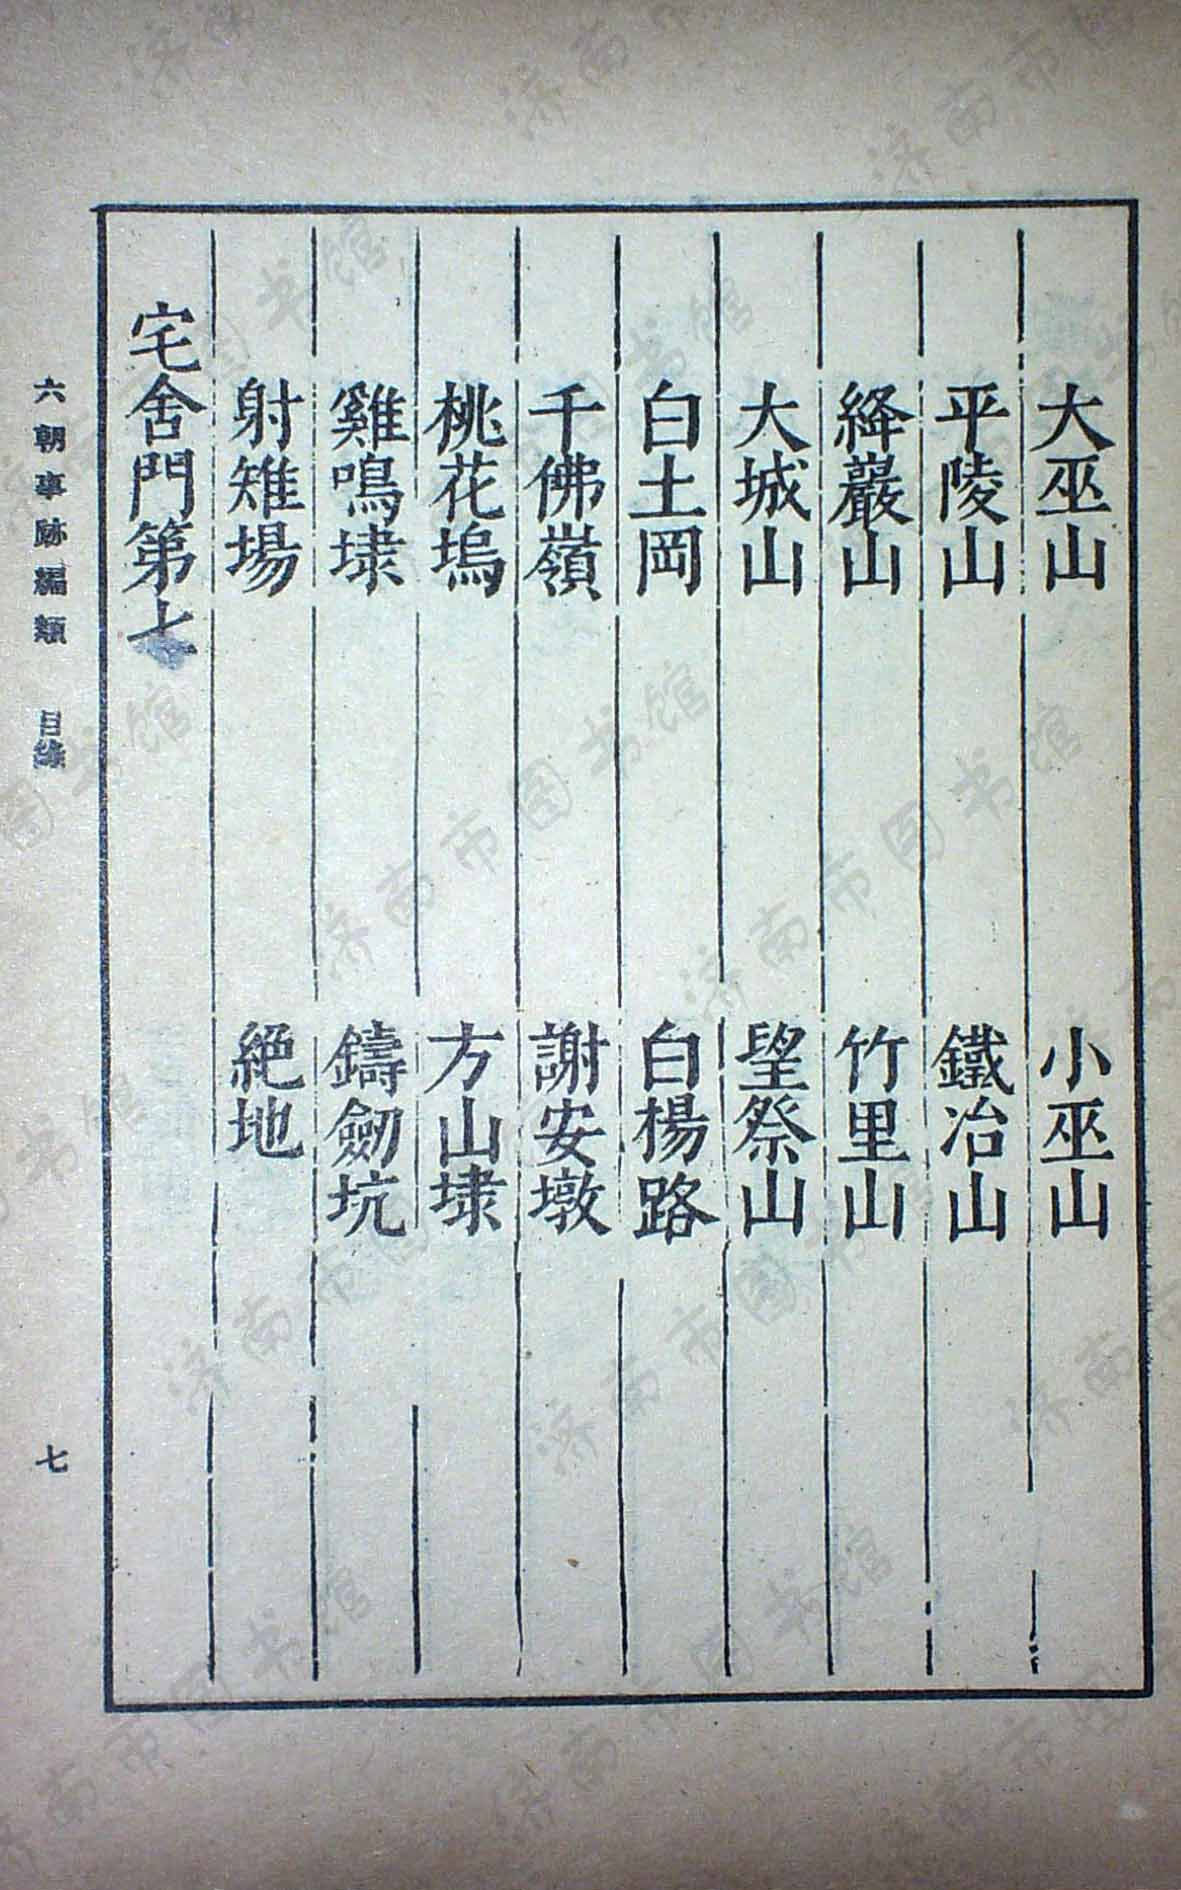 大巫山　小巫山
平陵山　鐵冶山
絳巖山　竹里山
大城山　望祭山
白土岡　白楊路
千佛嶺　謝安墩
桃花塢　方山埭
雞鳴埭　鑄劒坑
射雉場　絕地
宅舍門第七
六朝事跡編類　目錄
七
济南市图书馆